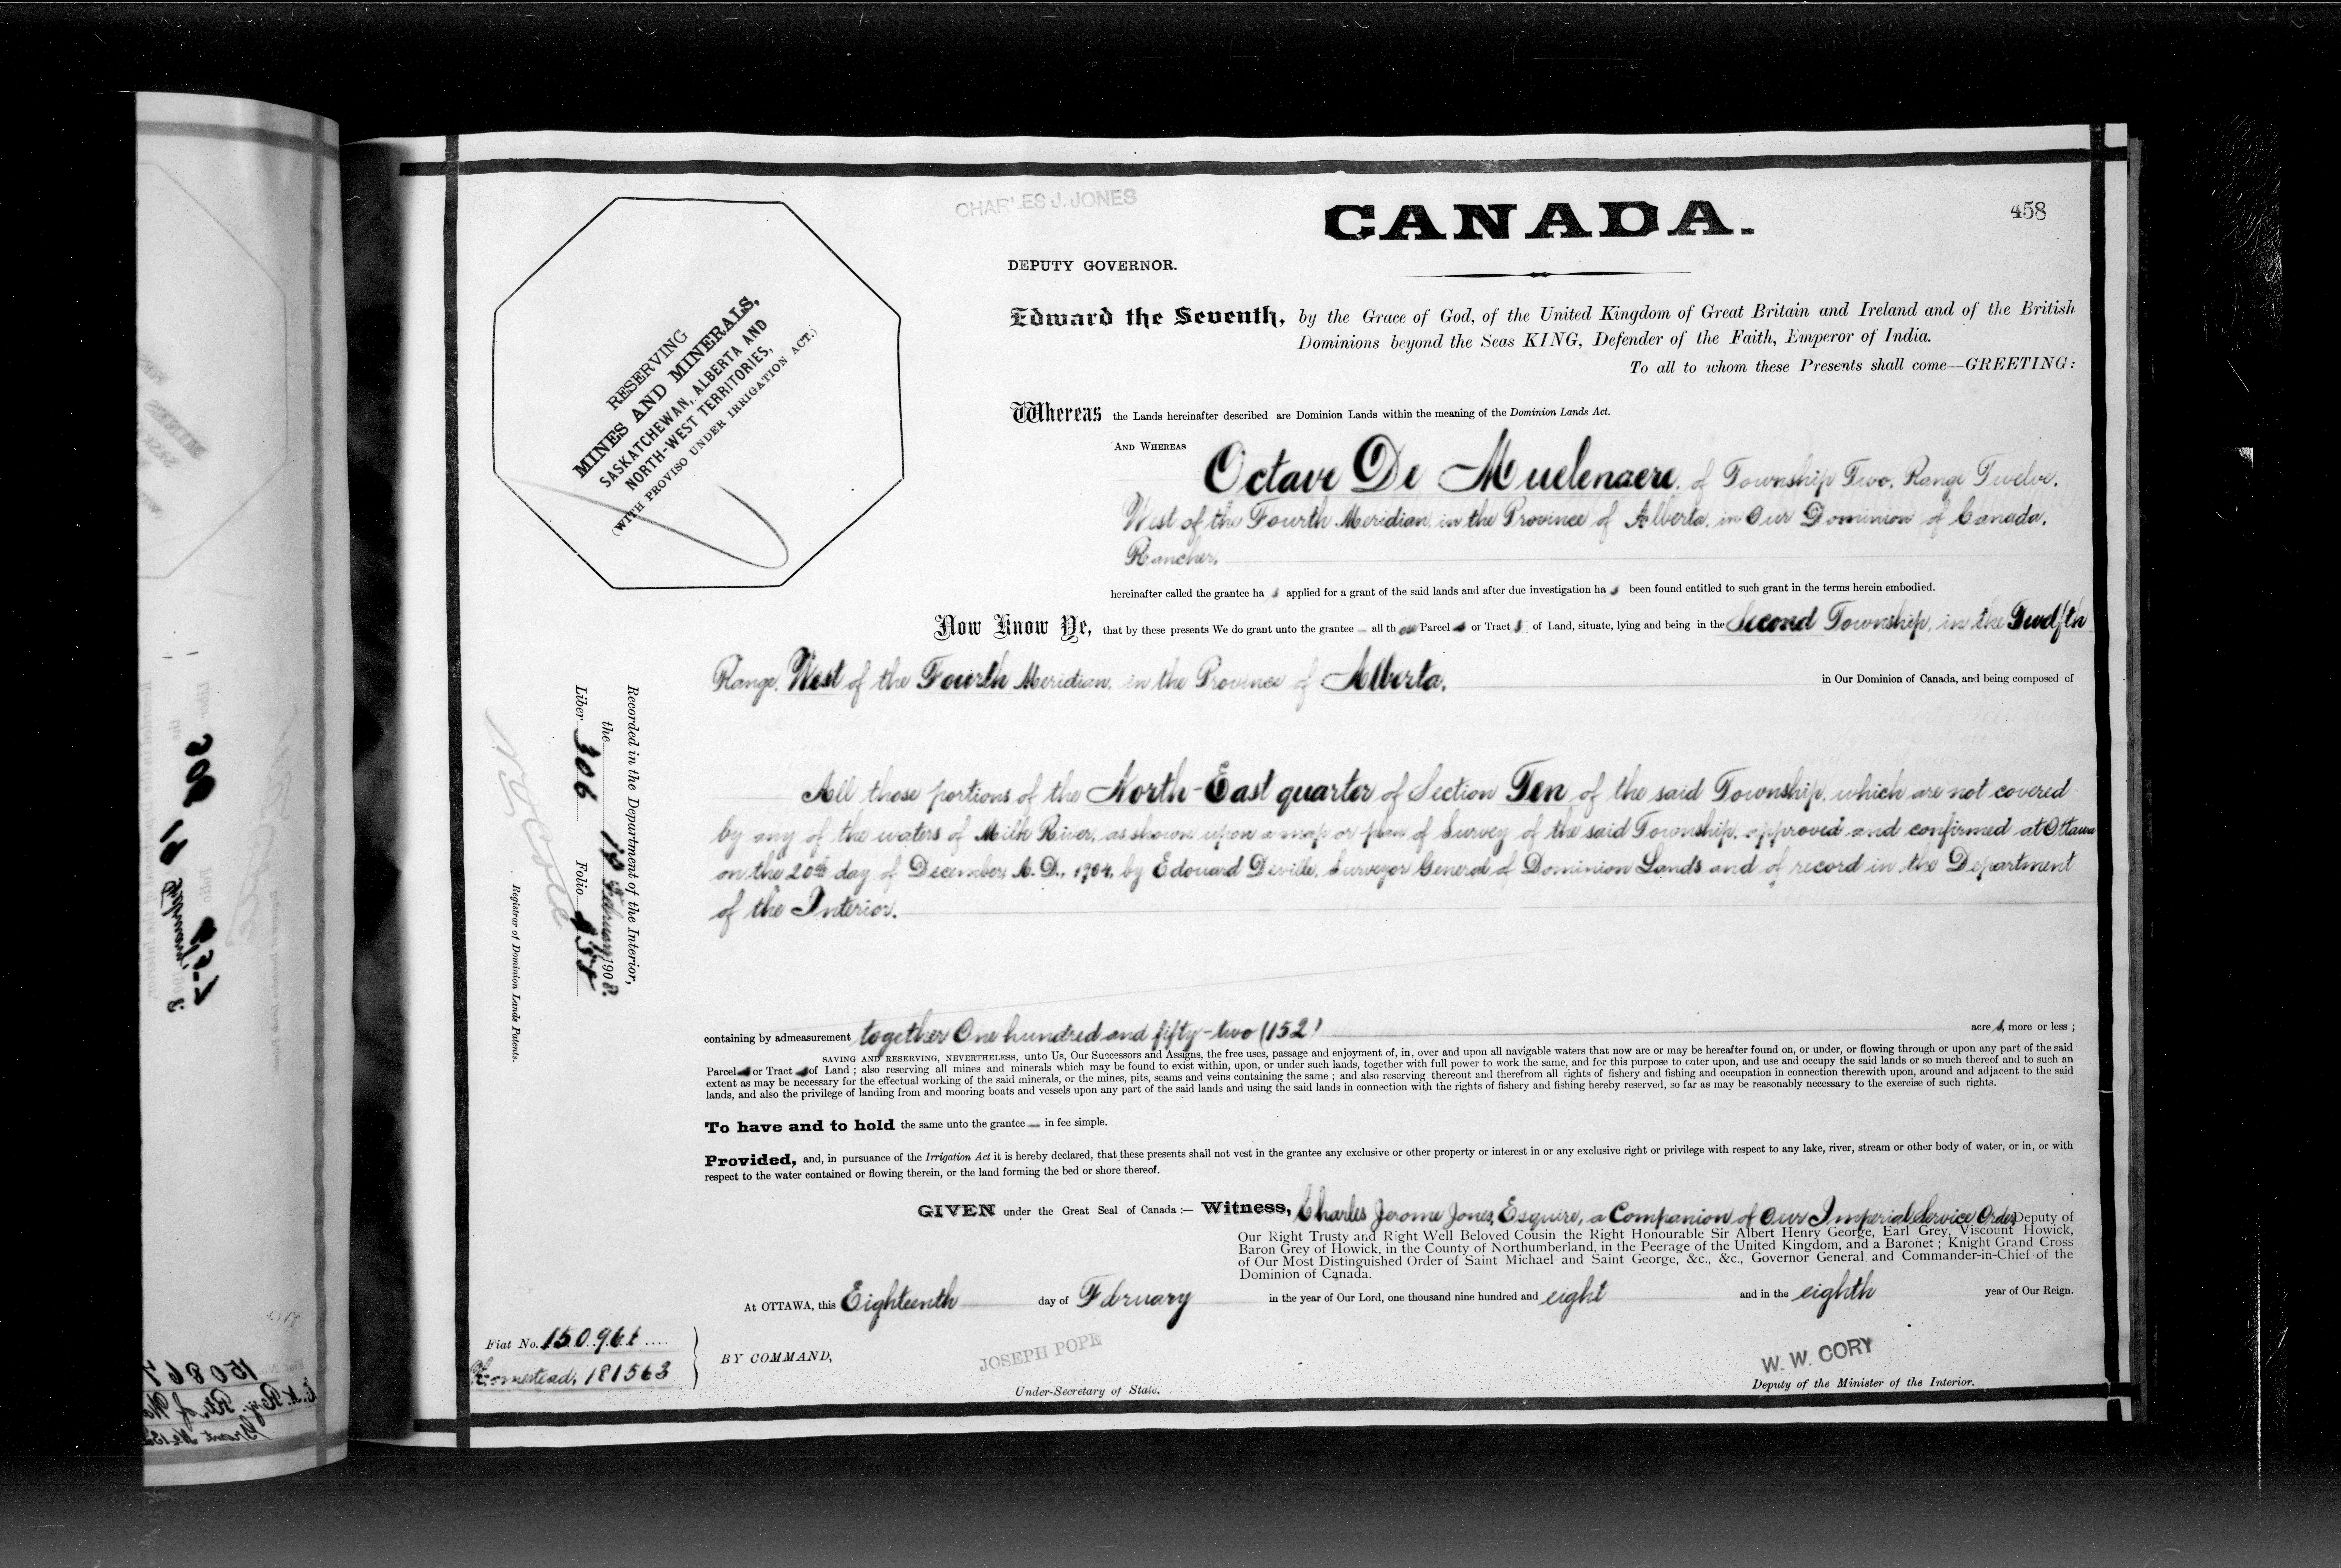 CHARLES J. JONES
CANADA.
458
DEPUTY GOVERNOR.
RESERVING
MINES AND MINERALS,
SASKATCHEWAN, ALBERTA AND
NORTH-WEST TERRITORIES,
(WITH PROVISO UNDER IRRIGATION ACT.)
Edward the Seventh, by the Grace of God, of the United Kingdom of Great Britain and Ireland and of the British
Dominions beyond the Seas KING, Defender of the Faith, Emperor of India.
To all to whom these Presents shall come—GREETING:
Whereas the Lands hereinafter described are Dominion Lands within the meaning of the Dominion Lands Act.
AND WHEREAS Octave De Muelenaere, of Township Two, Range Twelve,
West of the Fourth Meridian, in the Province of Alberta, in Our Dominion of Canada,
Rancher,
hereinafter called the grantee ha s applied for a grant of the said lands and after due investigation ha s been found entitled to such grant in the terms herein embodied.
Now Know Ye, that by these presents We do grant unto the grantee — all th ose Parcel or Tract s of Land, situate, lying and being in the Second Township, in the Twelfth
Range, West of the Fourth Meridian, in the Province of Alberta, in Our Dominion of Canada, and being composed of
All those portions of the North-East quarter of Section Ten of the said Township, which are not covered
by any of the waters of Milk River, as shown upon a map or plan of Survey of the said Township, approved and confirmed at Ottawa
on the 20th day of December, A.D., 1904, by Edouard Deville, Surveyor General of Dominion Lands and of record in the Department
of the Interior.
containing by admeasurement together One hundred and fifty-two (152) acre s, more or less ;
SAVING AND RESERVING, NEVERTHELESS, unto Us, Our Successors and Assigns, the free uses, passage and enjoyment of, in, over and upon all navigable waters that now are or may be hereafter found on, or under, or flowing through or upon any part of the said
Parcel or Tract of Land ; also reserving all mines and minerals which may be found to exist within, upon, or under such lands, together with full power to work the same, and for this purpose to enter upon, and use and occupy the said lands or so much thereof and to such an
extent as may be necessary for the effectual working of the said minerals, or the mines, pits, seams and veins containing the same ; and also reserving thereout and therefrom all rights of fishery and fishing and occupation in connection therewith upon, around and adjacent to the said
lands, and also the privilege of landing from and mooring boats and vessels upon any part of the said lands and using the said lands in connection with the rights of fishery and fishing hereby reserved, so far as may be reasonably necessary to the exercise of such rights.
To have and to hold the same unto the grantee — in fee simple.
Provided, and, in pursuance of the Irrigation Act it is hereby declared, that these presents shall not vest in the grantee any exclusive or other property or interest in or any exclusive right or privilege with respect to any lake, river, stream or other body of water, or in, or with
respect to the water contained or flowing therein, or the land forming the bed or shore thereof.
GIVEN under the Great Seal of Canada :— Witness, Charles Jerome Jones, Esquire, a Companion of Our Imperial Service Order, Deputy of
Our Right Trusty and Right Well Beloved Cousin the Right Honourable Sir Albert Henry George, Earl Grey, Viscount Howick,
Baron Grey of Howick, in the County of Northumberland, in the Peerage of the United Kingdom, and a Baronet ; Knight Grand Cross
of Our Most Distinguished Order of Saint Michael and Saint George, &c., &c., Governor General and Commander-in-Chief of the
Dominion of Canada.
At OTTAWA, this Eighteenth day of February in the year of Our Lord, one thousand nine hundred and eight and in the eighth year of Our Reign.
Fiat No.
Homestead, 181563
BY COMMAND,
JOSEPH POPE
Under-Secretary of State.
W. W. CORY
Deputy of the Minister of the Interior.
Recorded in the Department of the Interior,
the 18 February 1908.
Liber 306 Folio 458
N O Coté
Registrar of Dominion Lands Patents.